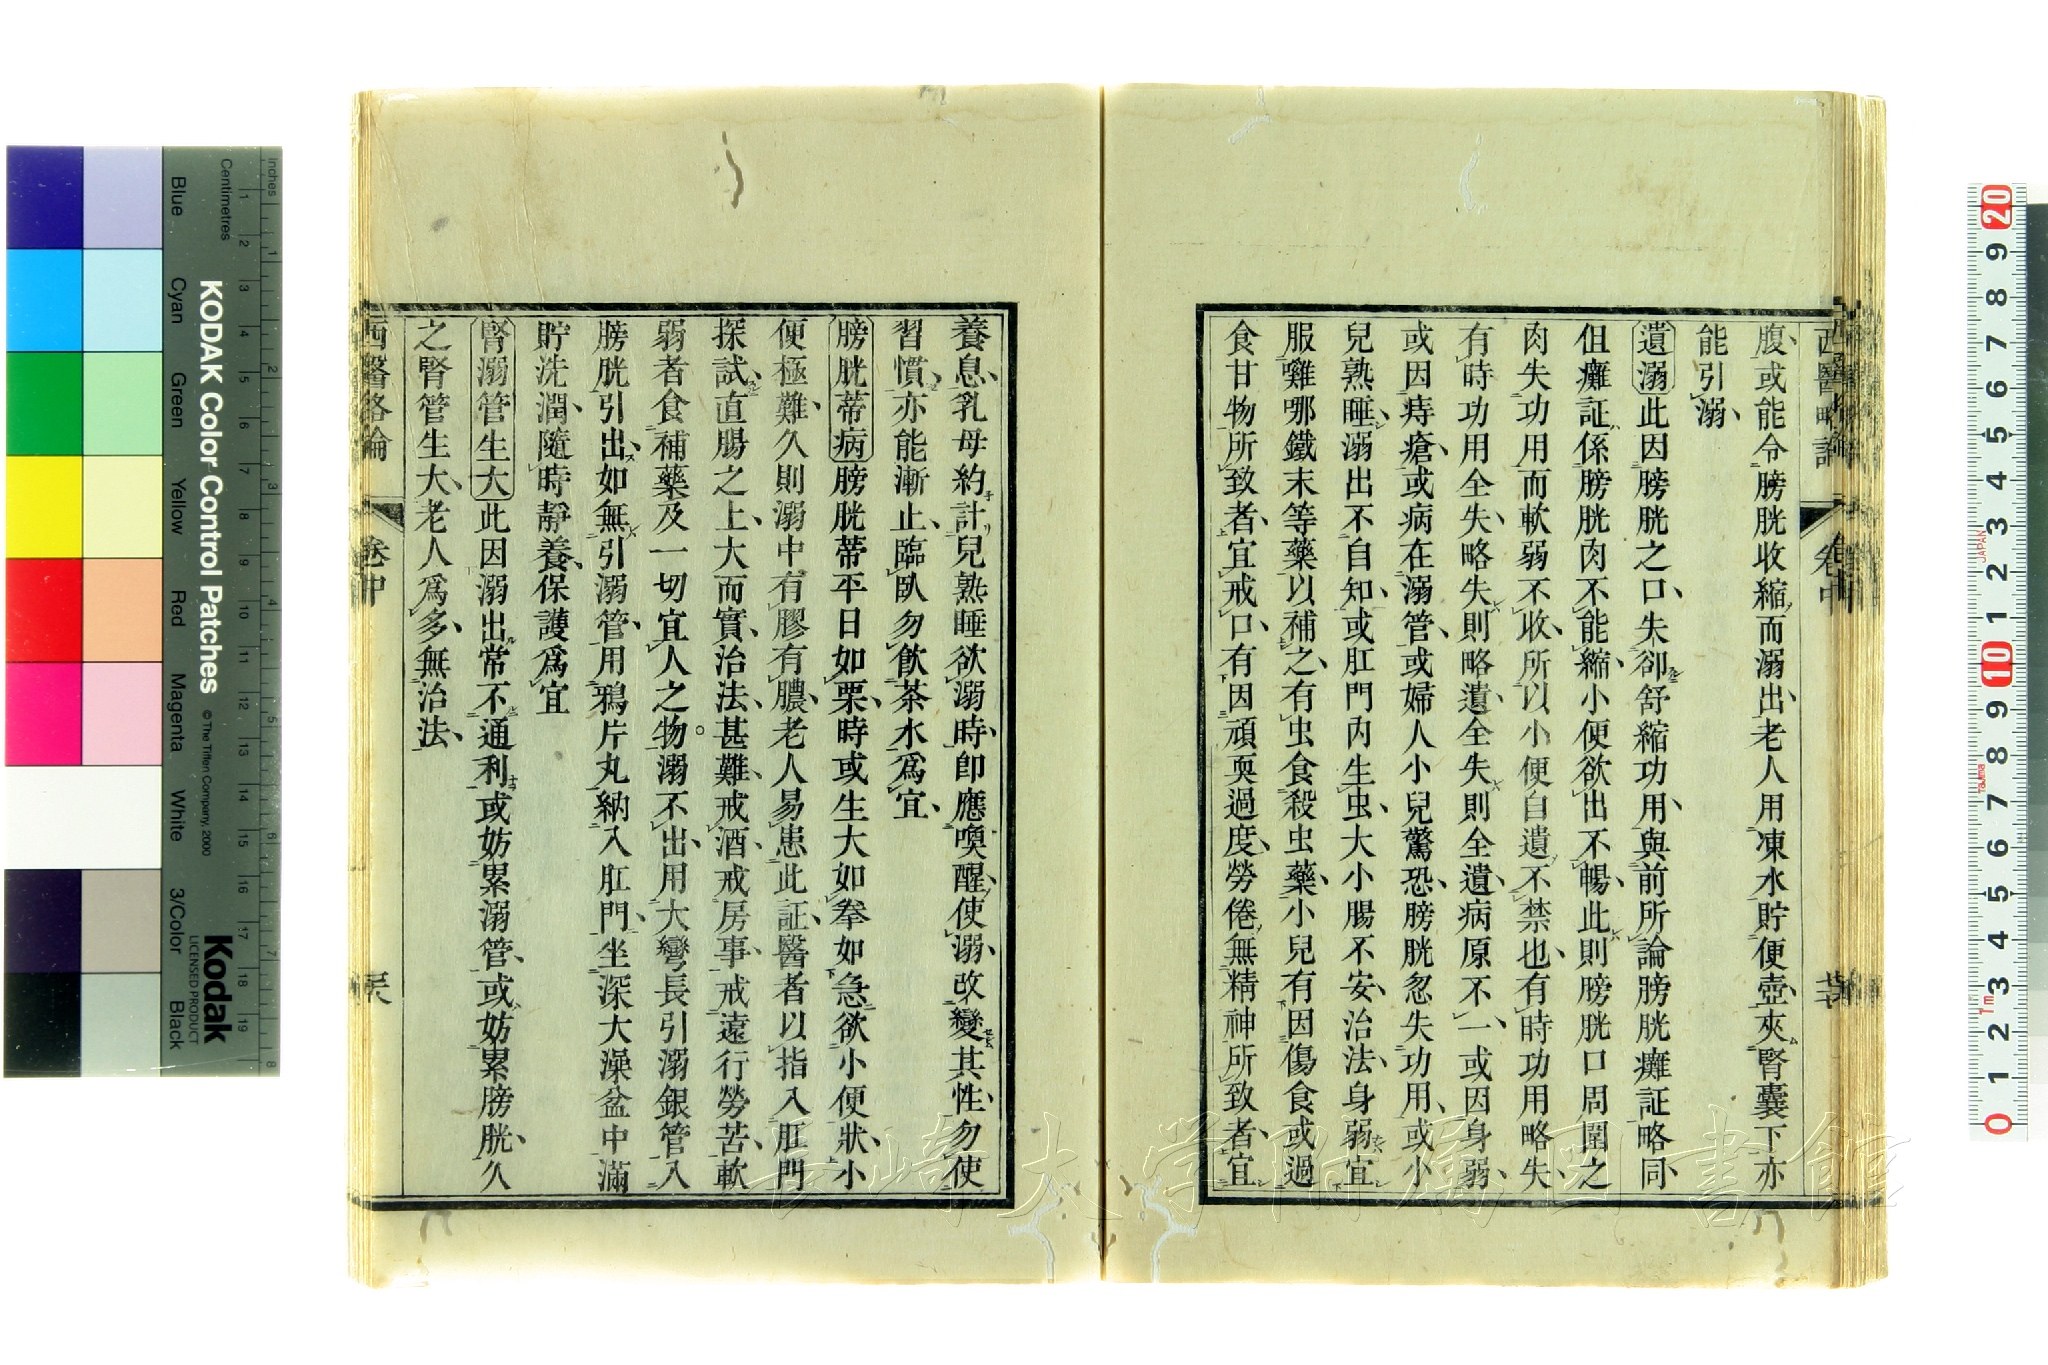 西醫略論 卷中
腹或能令膀胱收縮而溺出老人用凍水貯便壺夾腎囊下亦
能引溺
遺溺此因膀胱之口失卻舒縮功用與前所論膀胱癱証略同
但癱証係膀胱肉不能縮小便欲出不暢此則膀胱口周圍之
肉失功用而軟弱不收所以小便自遺不禁也有時功用略失
有時功用全失略失則略遺全失則全遺病原不一或因身弱
或因痔瘡或病在溺管或婦人小兒驚恐膀胱忽失功用或小
兒熟睡溺出不自知或肛門內生虫大小腸不安治法身弱宜
服雞哪鐵末等藥以補之有虫食殺虫藥小兒有因傷食或過
食甘物所致者宜戒口有因頑耍過度勞倦無精神所致者宜
養息乳母約計兒熟睡欲溺時即應喚醒使溺改變其性勿使
習慣亦能漸止臨臥勿飲茶水爲宜
膀胱蒂病膀胱蒂平日如栗時或生大如拳如急欲小便狀小
便極難久則溺中有膠有膿老人易患此証醫者以指入肛門
探試直腸之上大而實治法甚難戒酒戒房事戒遠行勞苦軟
弱者食補藥及一切宜人之物溺不出用大彎長引溺銀管入
膀胱引出如無引溺管用鴉片丸納入肛門坐深大澡盆中滿
貯洗潤隨時靜養保護爲宜
腎溺管生大此因溺出常不通利或妨累溺管或妨累膀胱久
之腎管生大老人爲多無治法
西醫略論 卷中
KODAK Color Control Patches
© The Tiffen Company, 2000
Kodak
LICENSED PRODUCT
Inches
Centimetres
Blue Cyan Green Yellow Red Magenta White 3/Color Black
長崎大学附属図書館
JAPAN